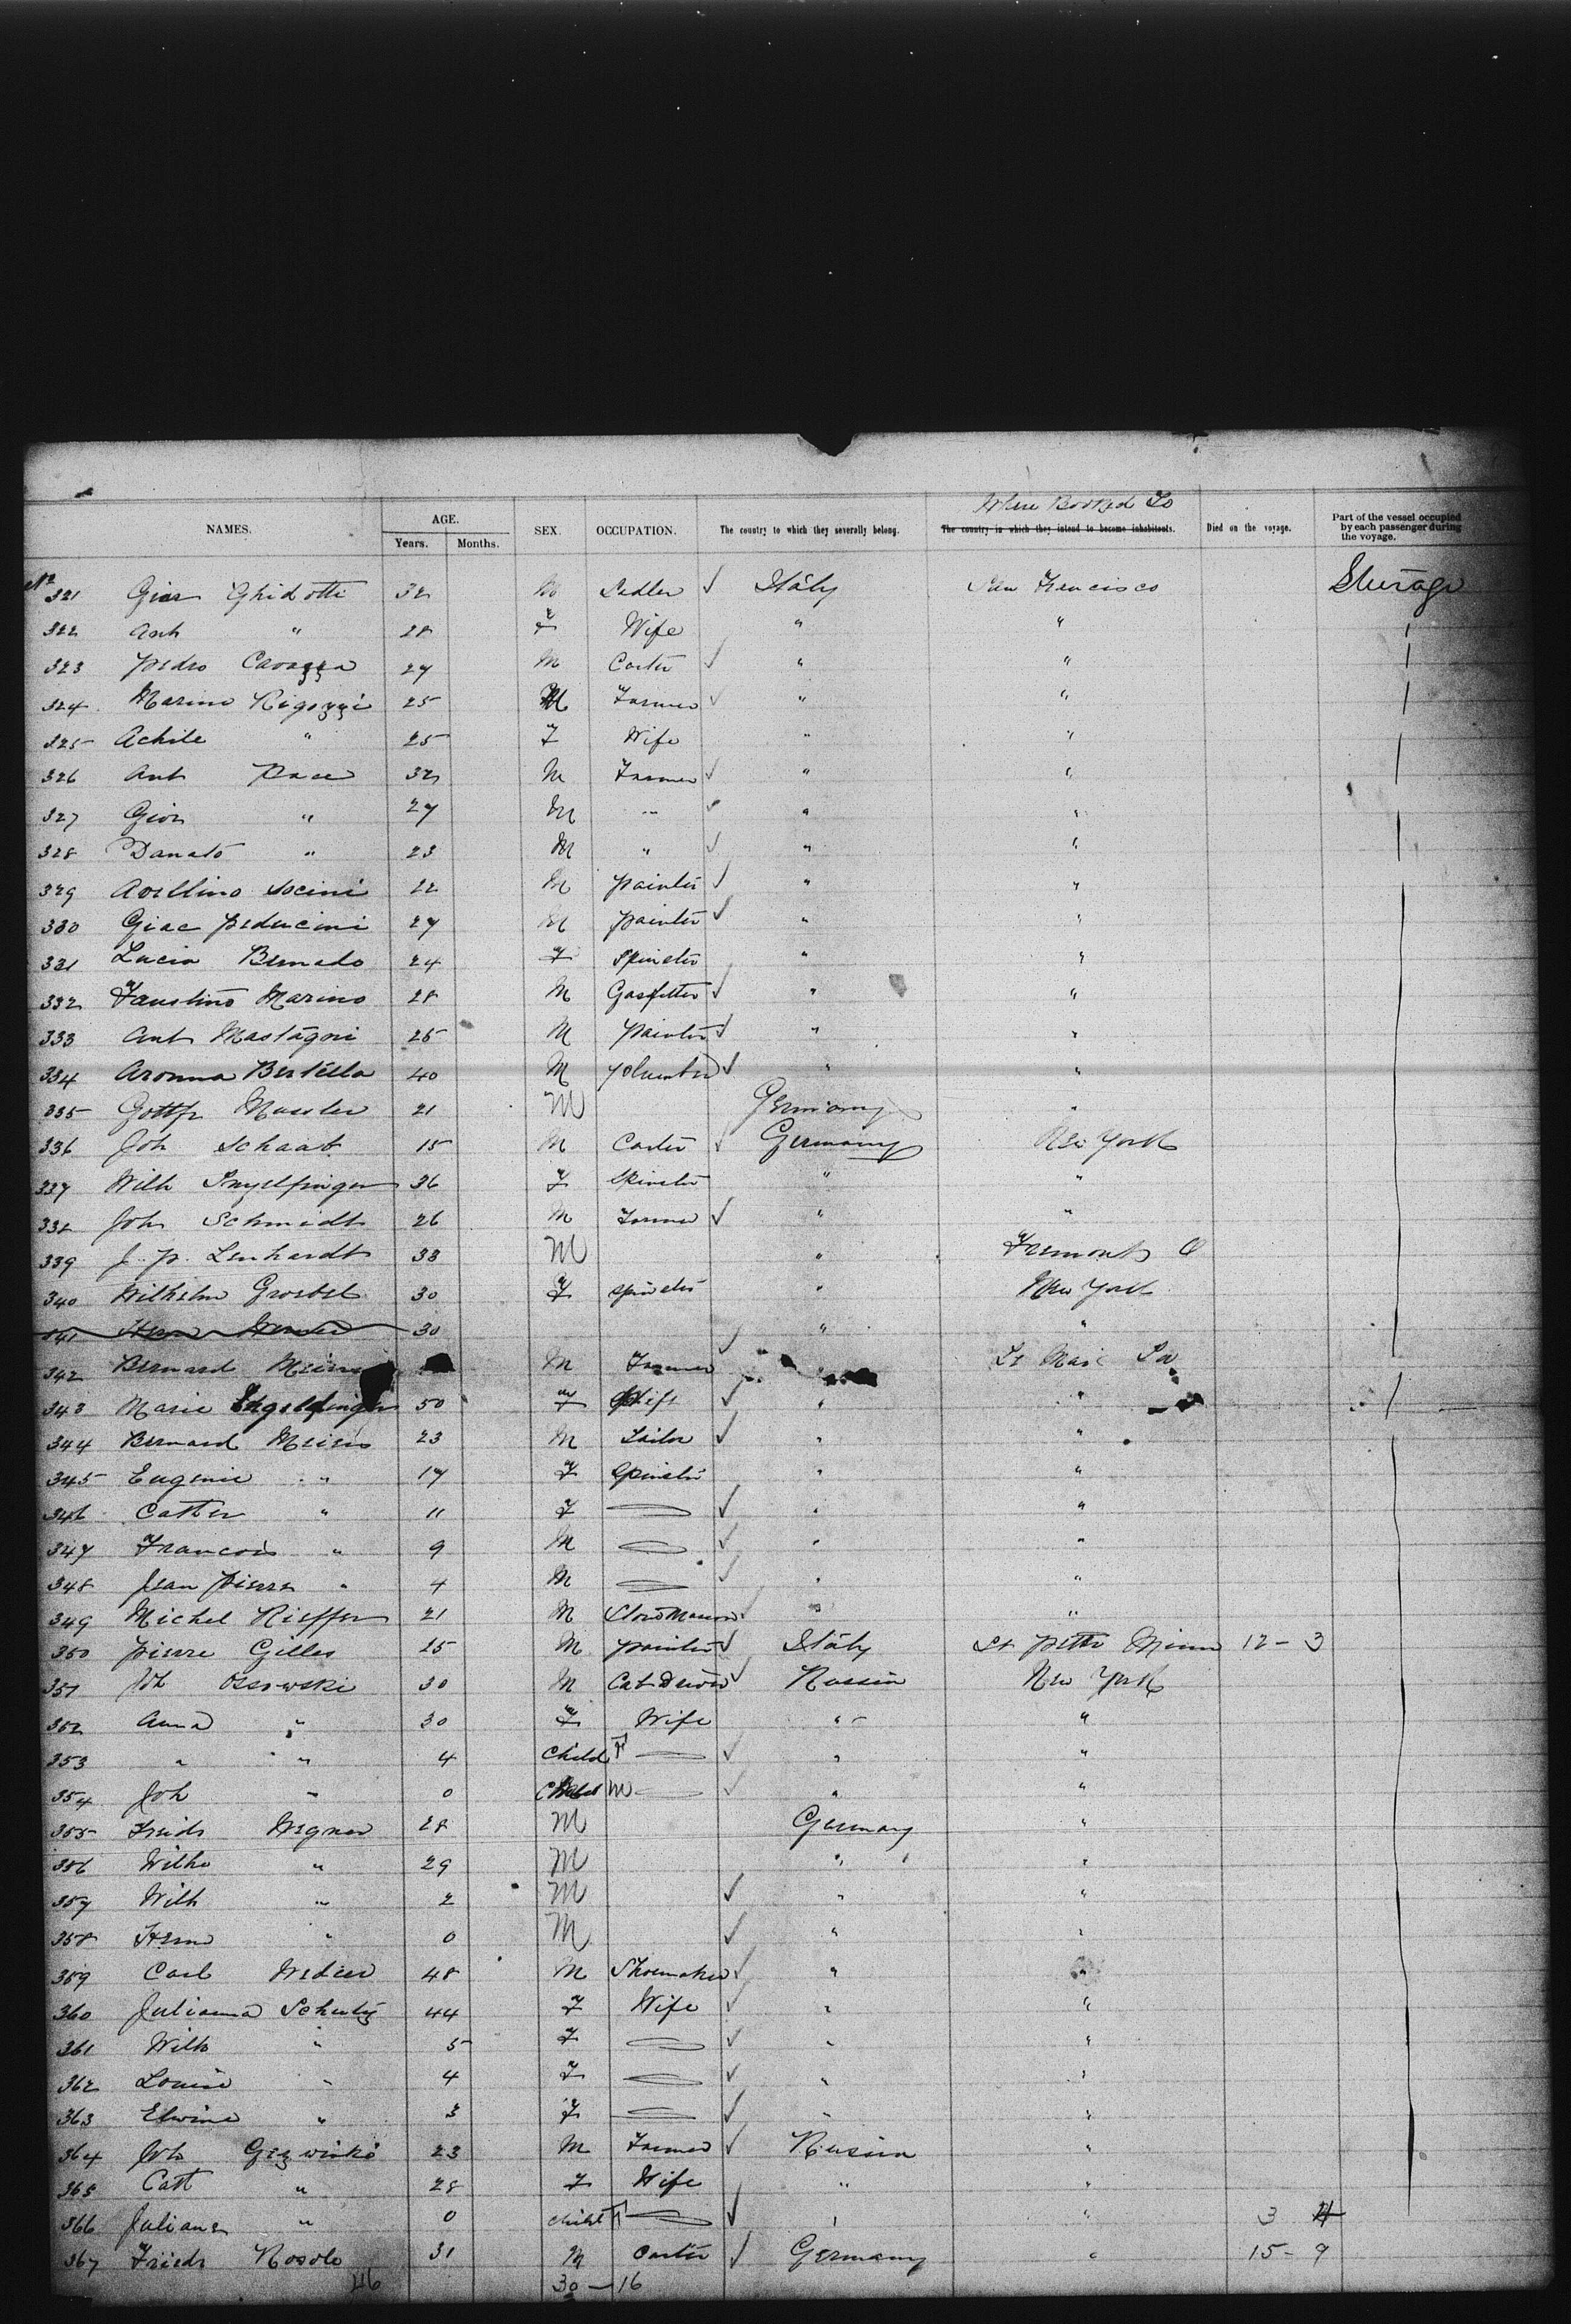 Where Booked To
NAMES. AGE. SEX. OCCUPATION. The country to which they severally belong. The country in which they intend to become inhabitants. Died on the voyage. Part of the vessel occupied by each passenger during the voyage.
Years. Months.
No 321 Ghidotti 32 M Pedler ✓ Italy San Francisco Steerage
322 " 28 F Wife " "
323 Pedro Cavazza 27 M Carter ✓ " "
324 Marino Rigozzi 25 M Farmer ✓ " "
325 Achile " 25 F Wife " "
326 Ant Pace 32 M Farmer ✓ " "
327 Giov " 27 M " ✓ " "
328 Danato " 23 M " ✓ " "
329 Avellino Socini 22 M painter ✓ " "
330 Giac Peducini 27 M painter ✓ " "
331 Lucia Bernado 24 F Spinster " "
332 Faustino Marino 28 M Gasfitter ✓ " "
333 Ant Mastagni 25 M painter ✓ " "
334 Aronna Bertella 40 M ✓ " "
335 Gottfr 21 M Germany "
336 Joh Schaab 15 M Carter ✓ Germany New York
337 Wilh 36 F Spinster " "
338 Joh Schmidt 26 M Farmer ✓ " "
339 J. P. Lenhardt 33 M " Fremont O
340 Wilhelm Groebel 30 F Spinster " New York
341 30 " "
342 Bernard M Farmer St Marie Pa
343 Marie Engelfinger 50 F Wife ✓ " "
344 Bernard 23 M Tailor ✓ " "
345 Eugenie " 17 F Spinster " "
346 Cather " 11 F ✓ " "
347 Francois " 9 M ✓ " "
348 Jean Pierre " 4 M ✓ " "
349 Michel Rieffer 21 M Stonemason ✓ " "
350 Pierre Gilles 25 M painter ✓ Italy St Peter Minn 12 - 3
351 Joh Ossowski 30 M Cab Driver ✓ Russia New York
352 Anna " 30 F Wife " "
353 " " 4 Child F ✓ " "
354 Joh " 0 Child M ✓ " "
355 Friedr Wegner 28 M Germany "
356 Wilhe " 29 M " "
357 Wilh " 2 M ✓ " "
358 Herm " 0 M ✓ " "
359 Carl 48 M Shoemaker ✓ " "
360 Julianna Schulz 44 F Wife ✓ " "
361 Wilh " 5 F ✓ " "
362 Louise " 4 F ✓ " "
363 Elwine " 3 F ✓ " "
364 Joh 23 M Farmer ✓ Russia "
365 Cath " 28 F Wife " "
366 Juliane " 0 child F ✓ " " 3
367 Friedr Rosolo 31 M Carter ✓ Germany " 15 - 9
46 30 - 16